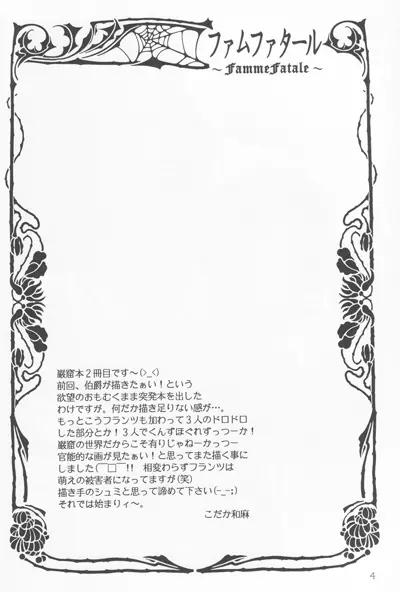 ファムファタール
～FammeFatale～
巌窟本２冊目です～(>_<)
前回、伯爵が描きたぁい！という
欲望のおもむくまま突発本を出した
わけですが。何だか描き足りない感が…。
もっとこうフランツも加わって３人のドロドロ
した部分とか！３人でくんずほぐれずっつーか！
巌窟の世界だからこそ有りじゃねーかっつー
官能的な画が見たぁい！と思ってまた描く事に
しました(￣□￣)!! 相変わらずフランツは
萌えの被害者になってますが(笑)
描き手のシュミと思って諦めて下さい(-_-;)
それでは始まりィ～。
こだか和麻
4